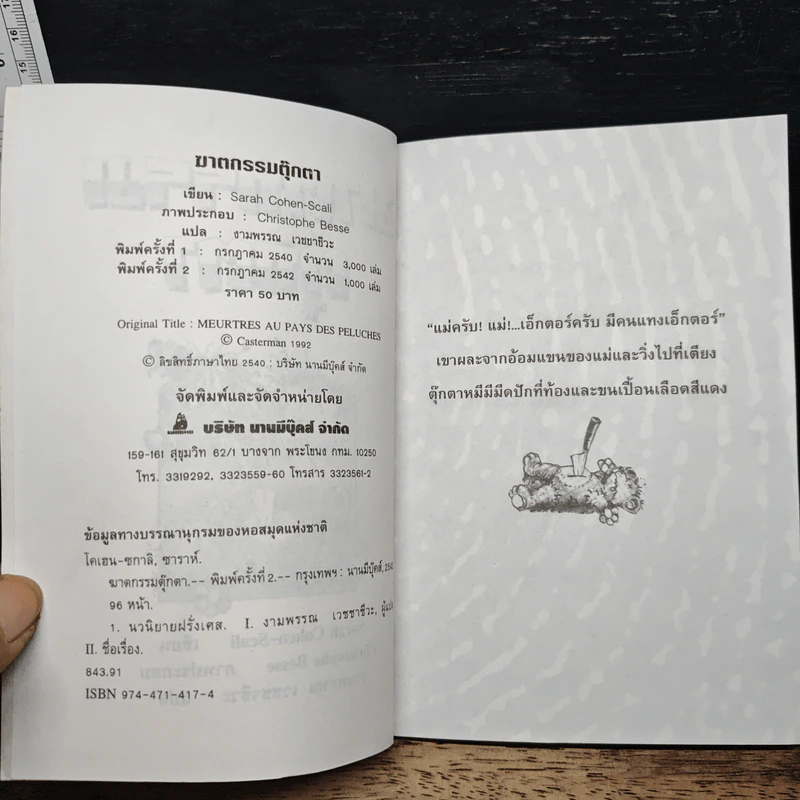 ฆาตกรรมตุ๊กตา
เขียน : Sarah Cohen-Scali
ภาพประกอบ : Christophe Besse
แปล : งามพรรณ เวชชาชีวะ
พิมพ์ครั้งที่ 1 : กรกฎาคม 2540 จำนวน 3,000 เล่ม
พิมพ์ครั้งที่ 2 : กรกฎาคม 2542 จำนวน 1,000 เล่ม
ราคา 50 บาท
Original Title : MEURTRES AU PAYS DES PELUCHES
© Casterman 1992
© ลิขสิทธิ์ภาษาไทย 2540 : บริษัท นานมีบุ๊คส์ จำกัด
จัดพิมพ์และจัดจำหน่ายโดย
บริษัท นานมีบุ๊คส์ จำกัด
159-161 สุขุมวิท 62/1 บางจาก พระโขนง กทม. 10250
โทร. 3319292, 3323559-60 โทรสาร 3323561-2
ข้อมูลทางบรรณานุกรมของหอสมุดแห่งชาติ
โคเฮน-ซกาลิ, ซาราห์.
ฆาตกรรมตุ๊กตา.-- พิมพ์ครั้งที่ 2.-- กรุงเทพฯ : นานมีบุ๊คส์,
96 หน้า.
1. นวนิยายฝรั่งเศส. I. งามพรรณ เวชชาชีวะ,
II. ชื่อเรื่อง.
843.91
ISBN 974-471-417-4
"แม่ครับ! แม่!...เอ็กตอร์ครับ มีคนแทงเอ็กตอร์"
เขาผละจากอ้อมแขนของแม่และวิ่งไปที่เตียง
ตุ๊กตาหมีมีมีดปักที่ท้องและขนเปื้อนเลือดสีแดง
15
16